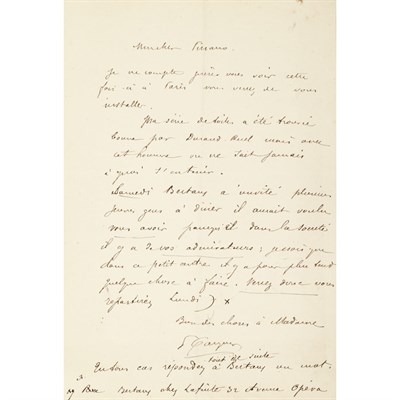 Mon cher Pissarro.
Je ne compte guère vous voir cette
fois ci à Paris vous venez de vous
installer.
Ma série de toiles a été trouvée
bonne par Durand Ruel mais avec
cet homme on ne sait jamais
à quoi s'en tenir.
Samedi Bertaux a invité plusieurs
jeunes gens à dîner il aurait voulu
vous avoir parcequ'il dans la société
il y a de vos admirateurs; je crois que
dans ce petit autre il y a pour plus tard
quelque chose à faire. Venez donc vous
repartirez Lundi) x
Bien des choses à Madame
tout de suite
En tous cas répondez à Bertaux un mot
Bertaux chez Lafitte 32 Avenue Opéra